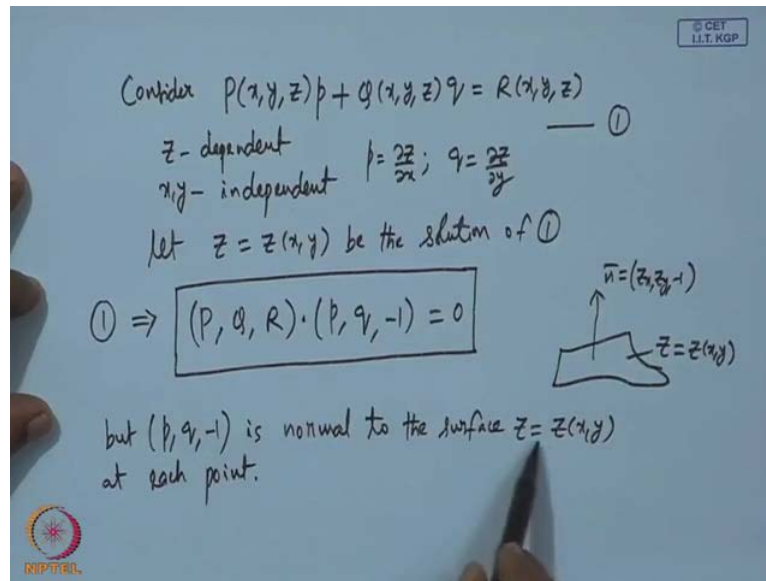 © CET
I.I.T. KGP
Consider P(x,y,z)p + Q(x,y,z)q = R(x,y,z)
— ①
z - dependent
x,y - independent p = ∂z/∂x ; q = ∂z/∂y
let z = z(x,y) be the solution of ①
① ⇒ (P, Q, R)·(p, q, -1) = 0
n̄ = (zx, zy, -1)
z = z(x,y)
but (p, q, -1) is normal to the surface z = z(x,y)
at each point.
NPTEL